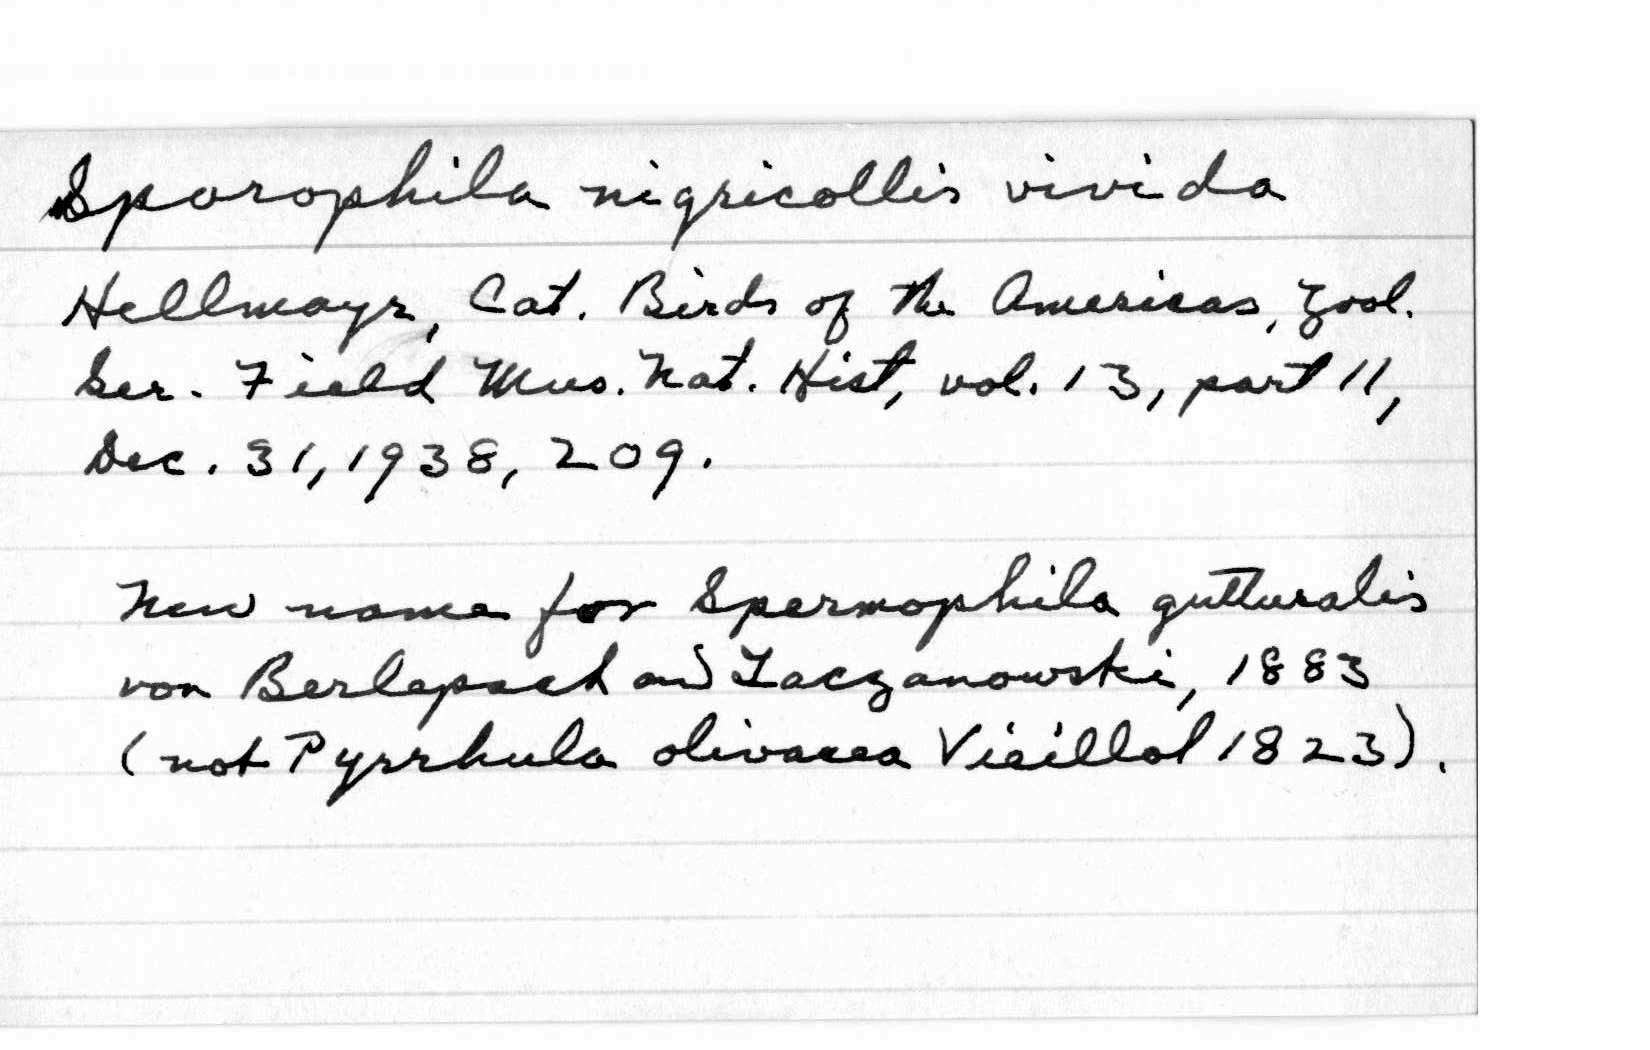 Sporophila nigricollis vivida
Hellmayr, Cat. Birds of the Americas, Zool.
Ser. Field Mus. Nat. Hist, vol. 13, part 11,
Dec. 31, 1938, 209.
New name for Spermophila gutturalis
von Berlepsch and Taczanowski, 1883
(not Pyrrhula olivacea Vieillot 1823).